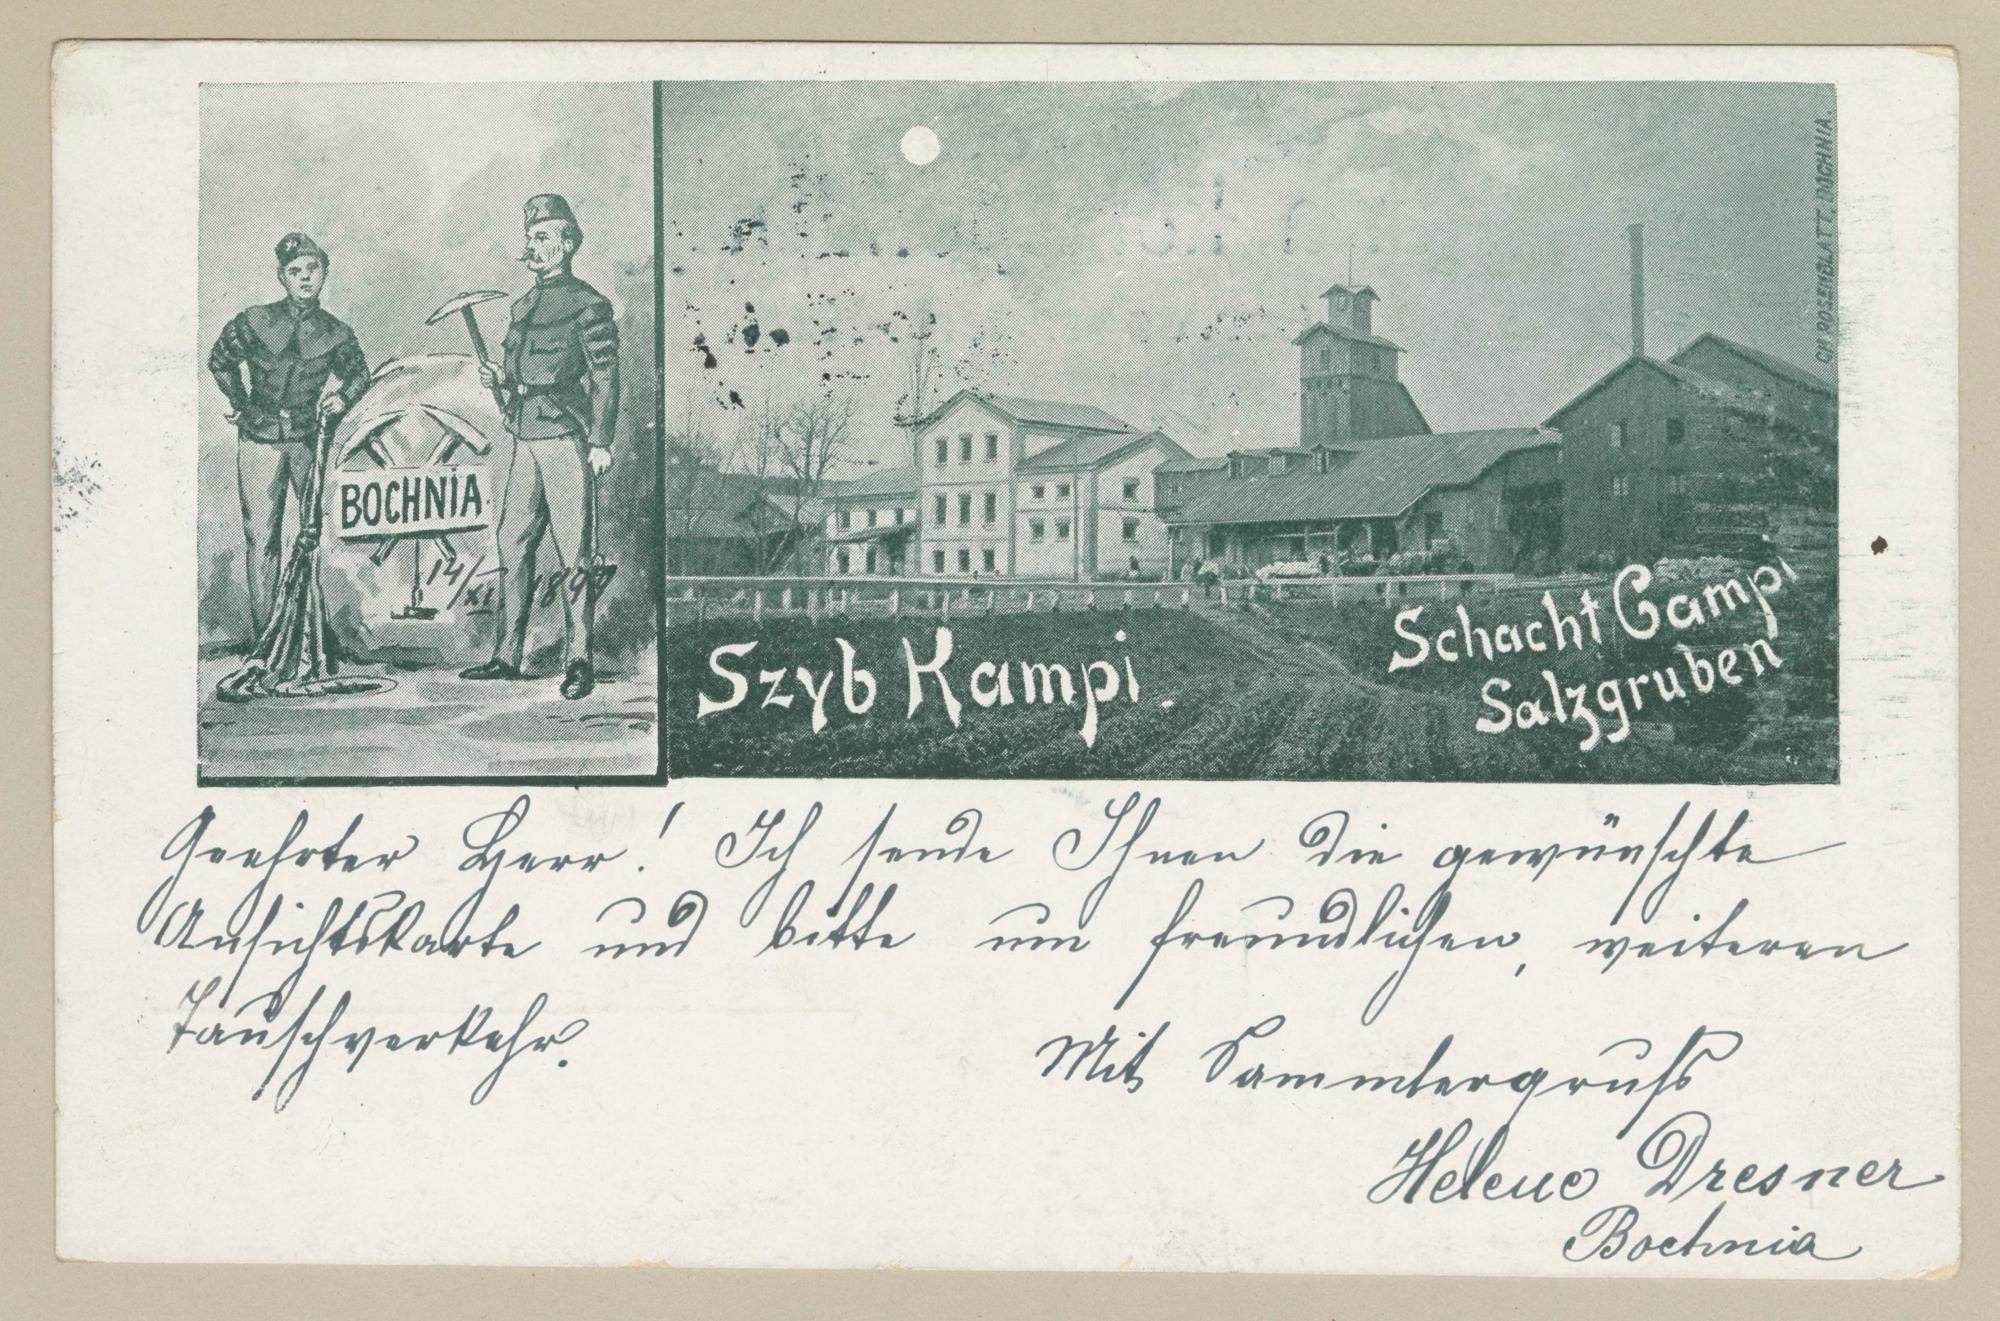 BOCHNIA
14/XI 1897
CH ROSENBLATT, BOCHNIA.
Szyb Kampi.
Schacht Campi
Salzgruben
Geehrter Herr! Ich sende Ihnen die gewünschte
Ansichtskarte und bitte um freundlichen, weiteren
Tauschverkehr.
Mit Sammlergruß
Helene Dresner
Bochnia